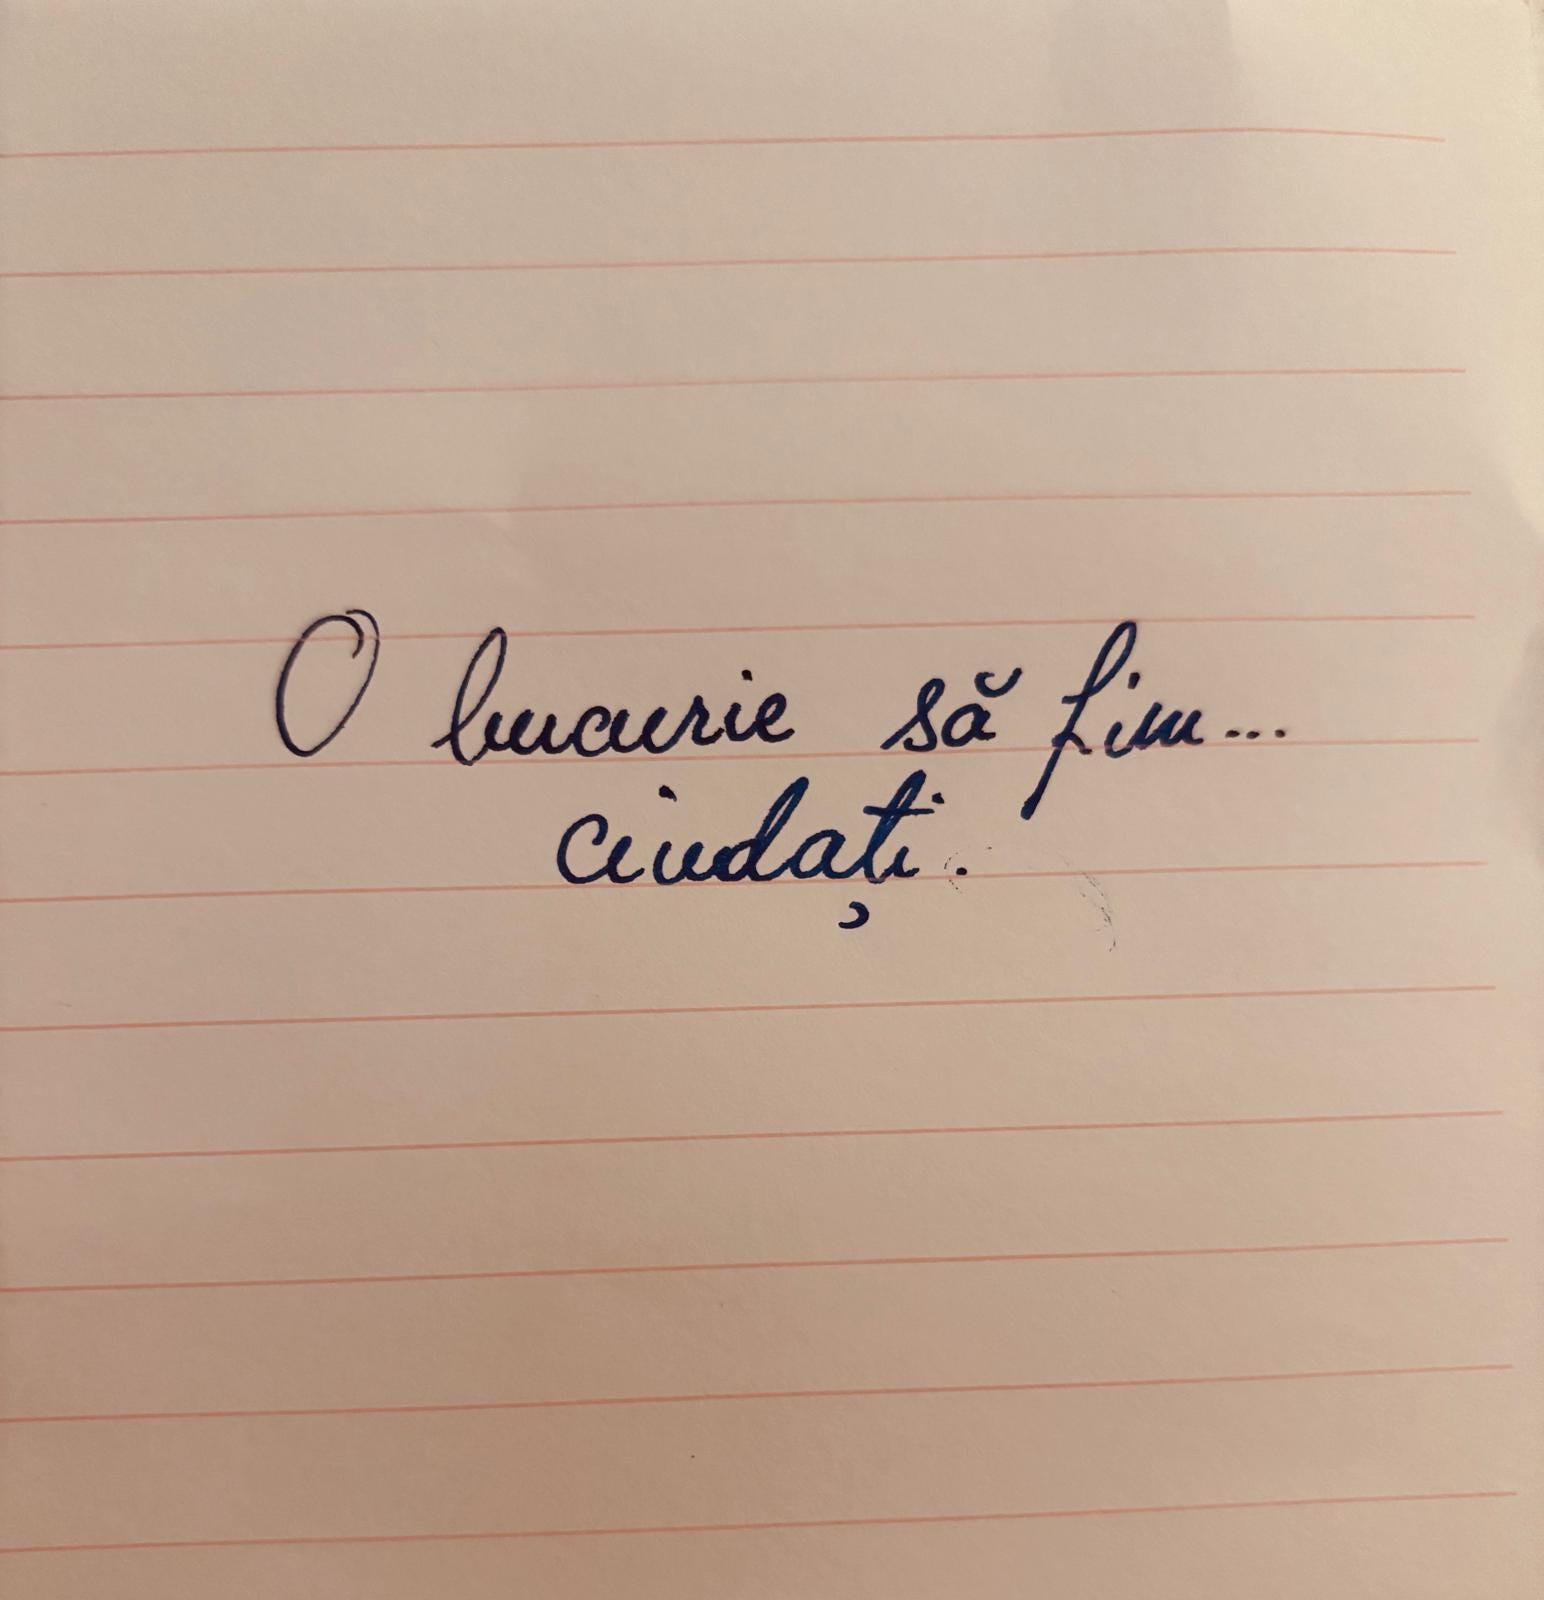 O bucurie să fim...
ciudați.